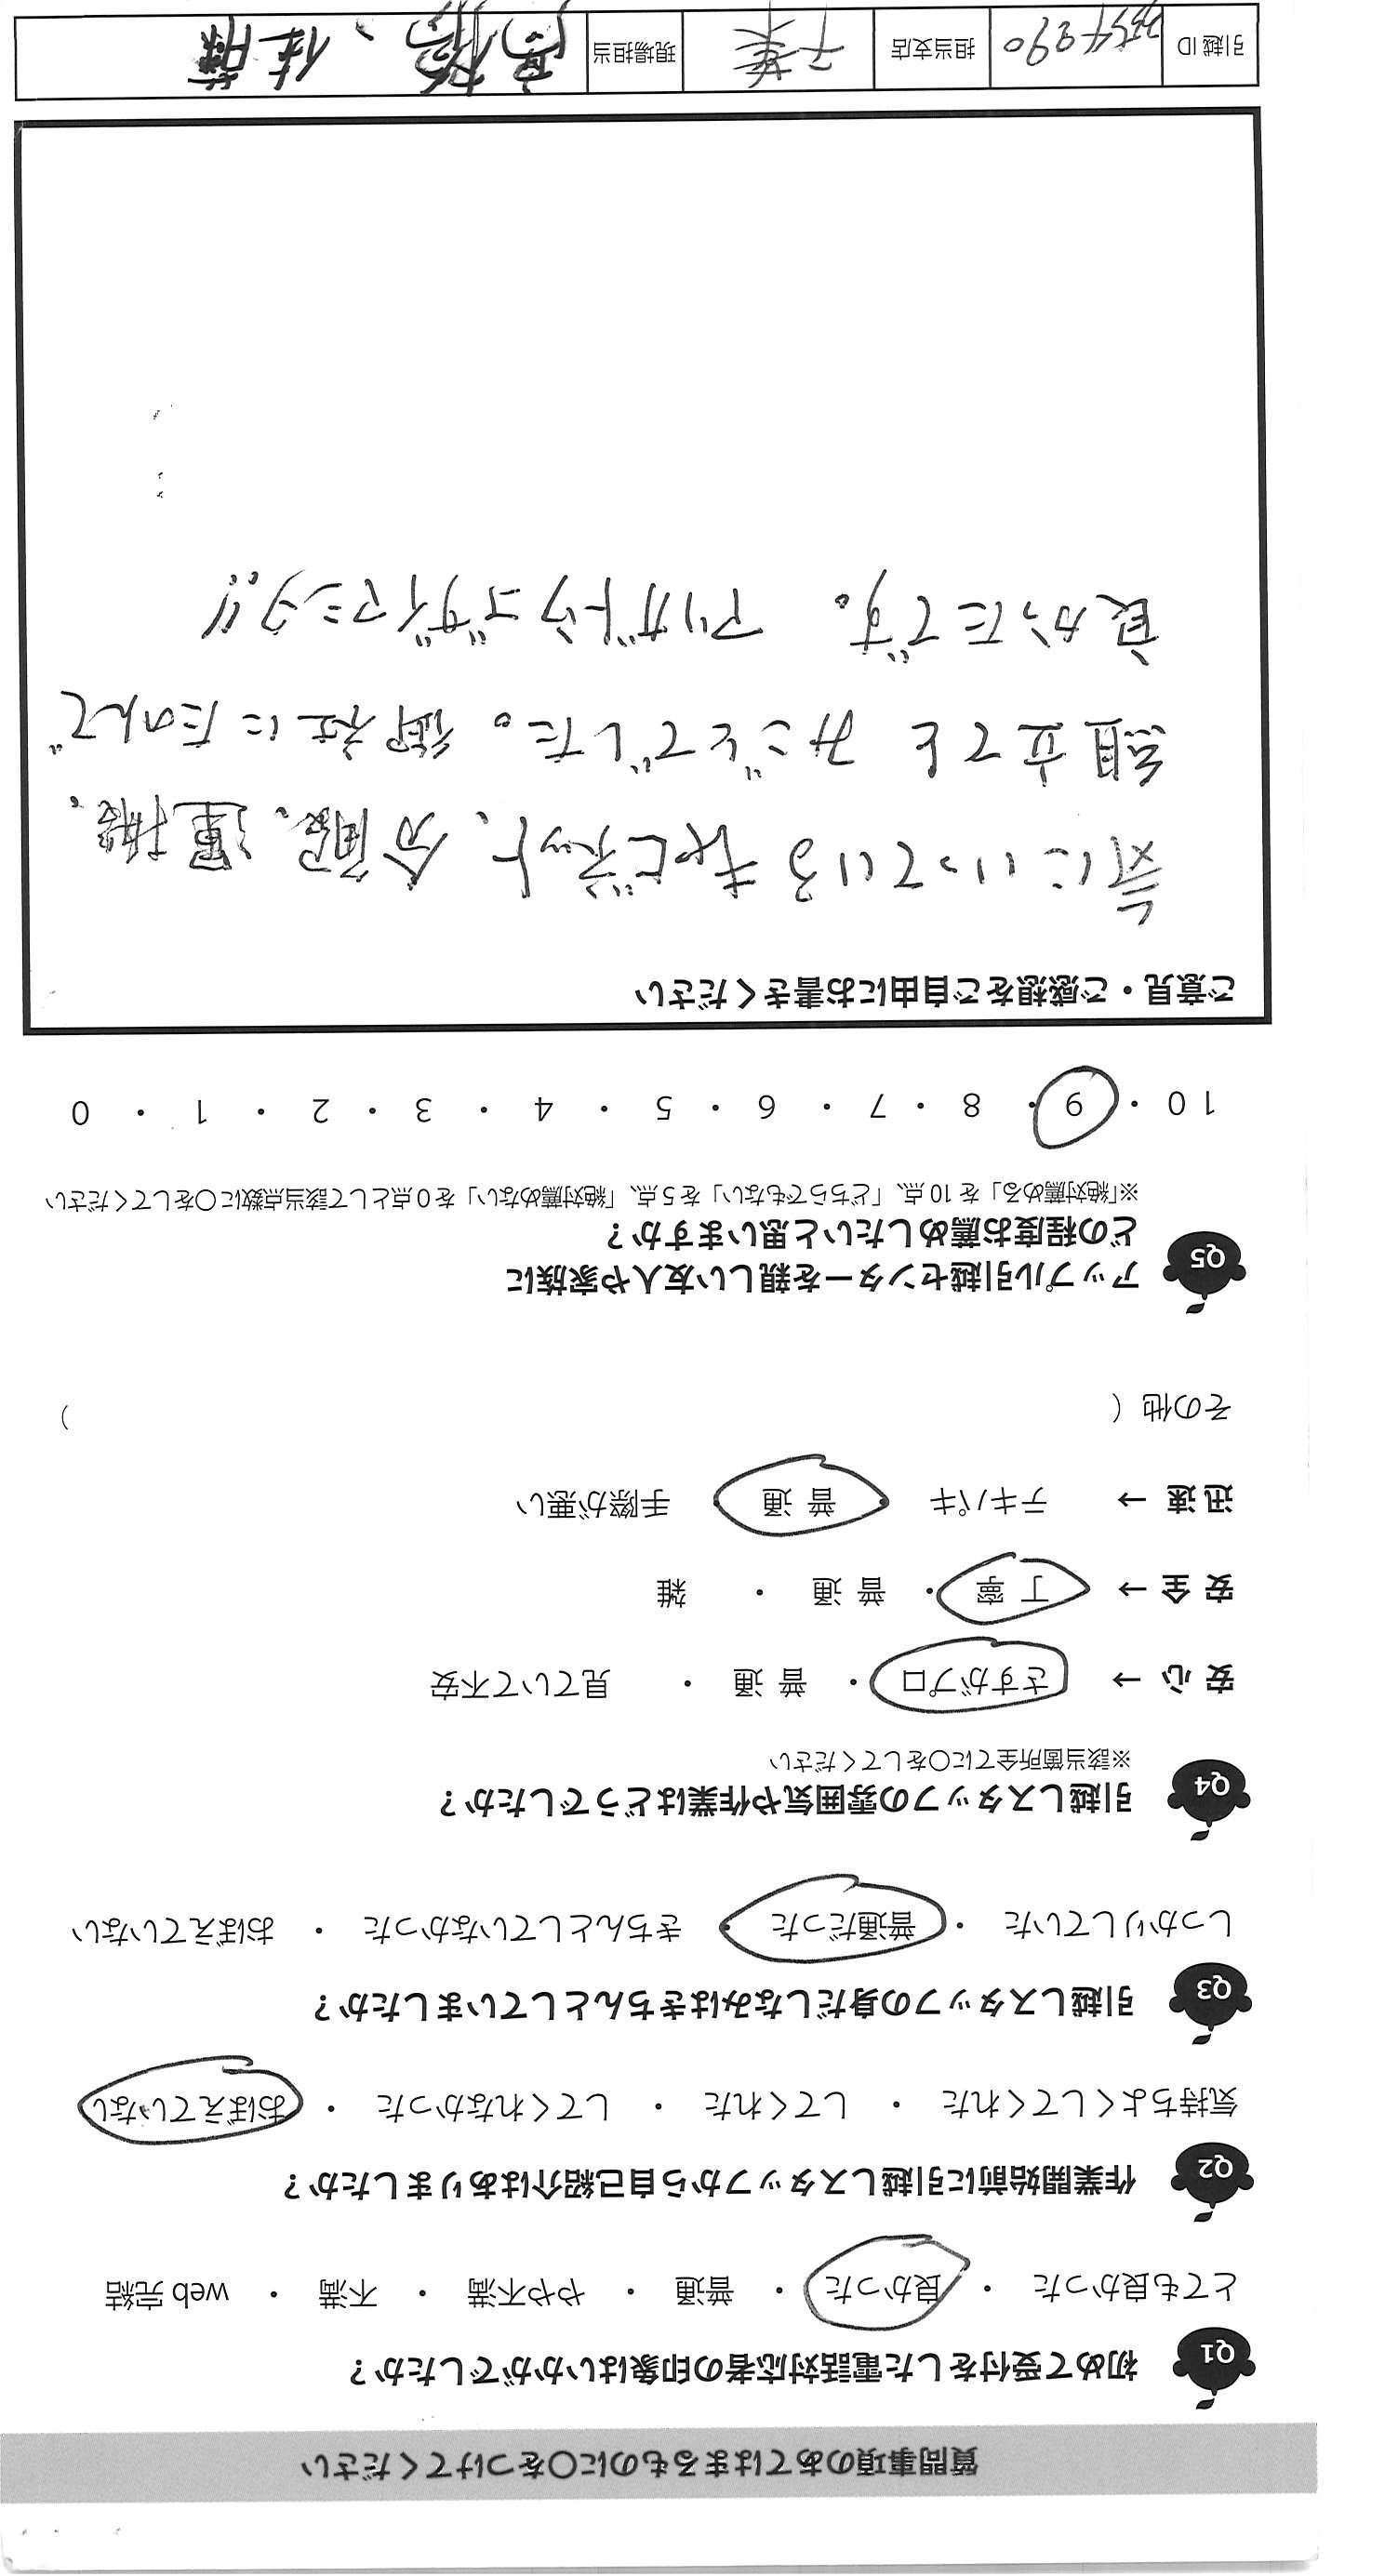 質問事項のあてはまるものに○をつけてください
Q1 初めて受付をした電話対応者の印象はいかがでしたか？
とても良かった ・ 良かった ・ 普通 ・ やや不満 ・ 不満 ・ web完結
Q2 作業開始前に引越しスタッフから自己紹介はありましたか？
気持ちよくしてくれた ・ してくれた ・ してくれなかった ・ おぼえていない
Q3 引越しスタッフの身だしなみはきちんとしていましたか？
しっかりしていた ・ 普通だった ・ きちんとしていなかった ・ おぼえていない
Q4 引越しスタッフの雰囲気や作業はどうでしたか？
※該当箇所全てに○をしてください
安 心 → さすがプロ ・ 普 通 ・ 見ていて不安
安 全 → 丁 寧 ・ 普 通 ・ 雑
迅 速 → テキパキ 普 通 手際が悪い
その他（ ）
Q5 アップル引越センターを親しい友人や家族に
どの程度お薦めしたいと思いますか？
※「絶対薦める」を10点、「どちらでもない」を5点、「絶対薦めない」を0点として該当点数に○をしてください
10 ・ 9 ・ 8 ・ 7 ・ 6 ・ 5 ・ 4 ・ 3 ・ 2 ・ 1 ・ 0
ご意見・ご感想をご自由にお書きください
気にいっている キャビネット、分解、運搬、
組立てと みごとでした。御社にたのんで
良かったです。 アリガトウゴザイマシタ!!
引越ID 担当支店 千葉 現場担当 高橋、佐藤